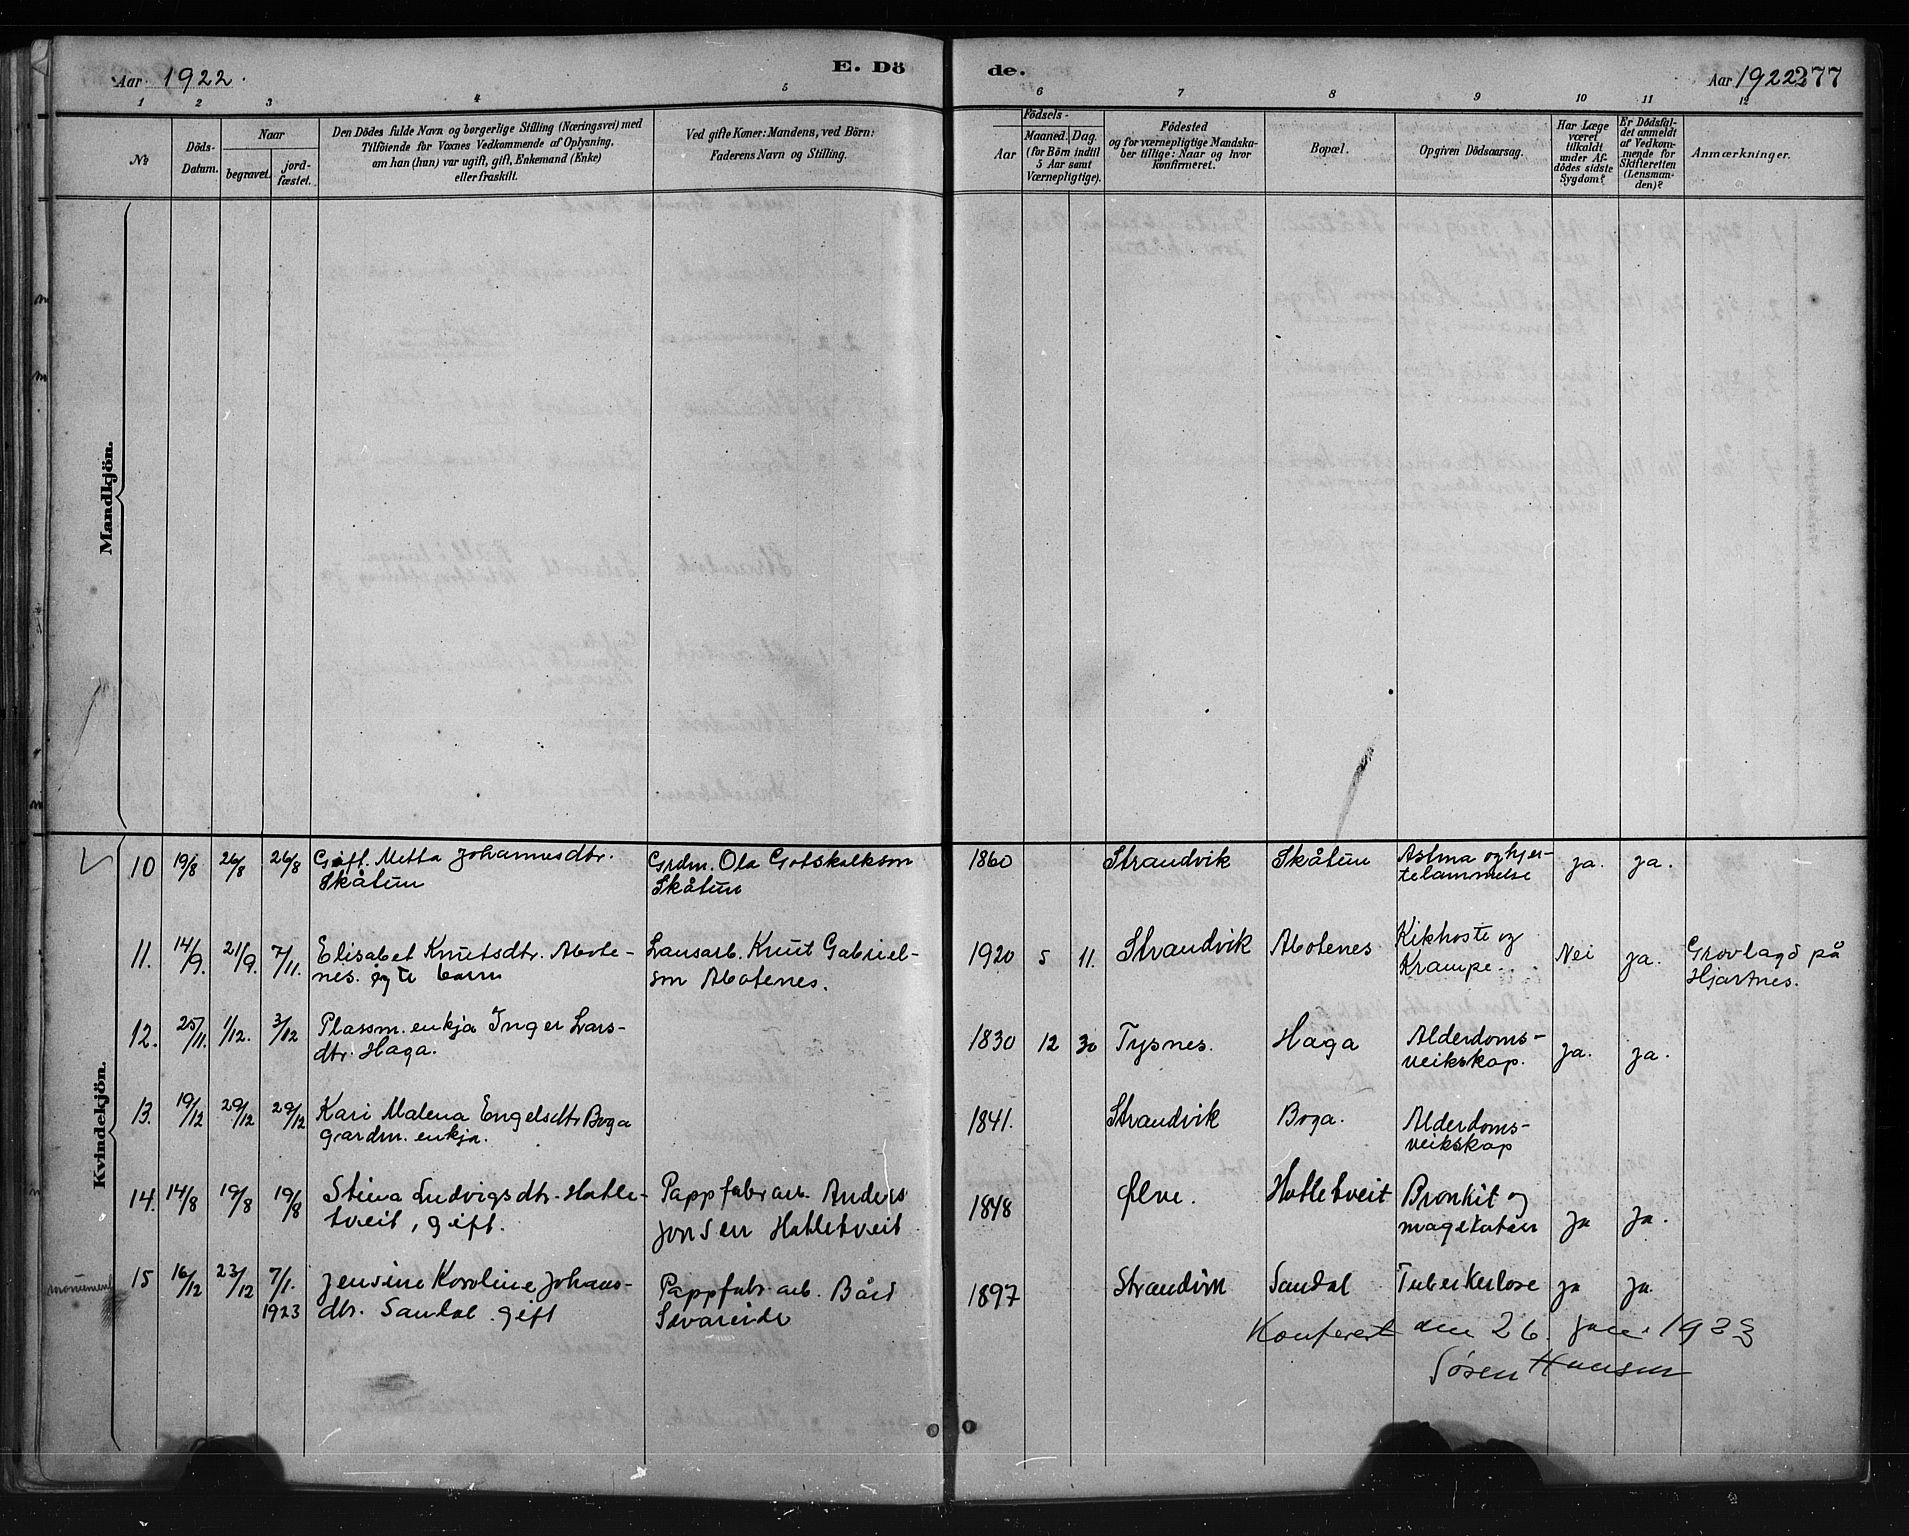 Aar 1922.
E. Dö
de.
Aar 1922 277
1 2 3 4 5 6 7 8 9 10 11 12
No
Döds-Datum.
Naar
begravet.
jord-fæstet.
Den Dödes fulde Navn og borgerlige Stilling (Næringsvei) med
Tilföiende for Voxnes Vedkommende af Oplysning,
om han (hun) var ugift, gift, Enkemand (Enke)
eller fraskilt.
Ved gifte Koner: Mandens, ved Börn:
Faderens Navn og Stilling.
Födsels-
Aar
Maaned. Dag.
(for Börn indtil
5 Aar samt
Værnepligtige).
Födested
og for værnepligtige Mandska-
ber tillige: Naar og hvor
konfirmeret.
Bopæl.
Opgiven Dödsaarsag.
Har Læge
været
tilkaldt
under Af-
dödes sidste
Sygdom?
Er Dödsfal-
det anmeldt
af Vedkom-
mende for
Skifteretten
(Lensman-
den)?
Anmærkninger.
Mandkjön.
Kvindekjön.
10 19/8 26/8 26/8 Gift. Metta Johannesdtr. Grdm. Ola Gotskalkson 1860 Strandvik Skåtun Astma og hjer- ja. ja.
Skåtun Skåtun telammelse
11. 14/9. 21/9. 7/11. Elisabet Knutsdtr. Lausarb. Knut Gabriel- 1920 5 11. Strandvik Kikhoste og Nei ja. Gravlagd på
nes. barn son Krampe. Hjartnes.
12. 25/11. 1/12. 3/12 Plassm. enkja Inger Lars- 1830 12 30 Tysnes. Haga Alderdoms- ja. ja.
dtr. Haga. veikskap.
13. 19/12 29/12 29/12 Kari Malena Engelsdtr Boga 1841. Strandvik Boga. Alderdoms-
gardm. enkja. veikskap
14. 14/8 19/8 19/8 Stina Ludvigsdtr. Hatle- Pappfabr. arb. Anders 1848 Ølve. Hatletveit Bronkit og ja ja.
tveit, gift. Jonsen Hatletveit magekatarr
monument 15 16/12 23/12 7/1. 1923 Jensine Karoline Johans- Pappfabr. arb. Bård 1897 Strandvik Sandal Tuberkulose ja ja.
dtr. Sandal. gift Idvareide
Konferert den 26. jan. 1923
Søren Hansen